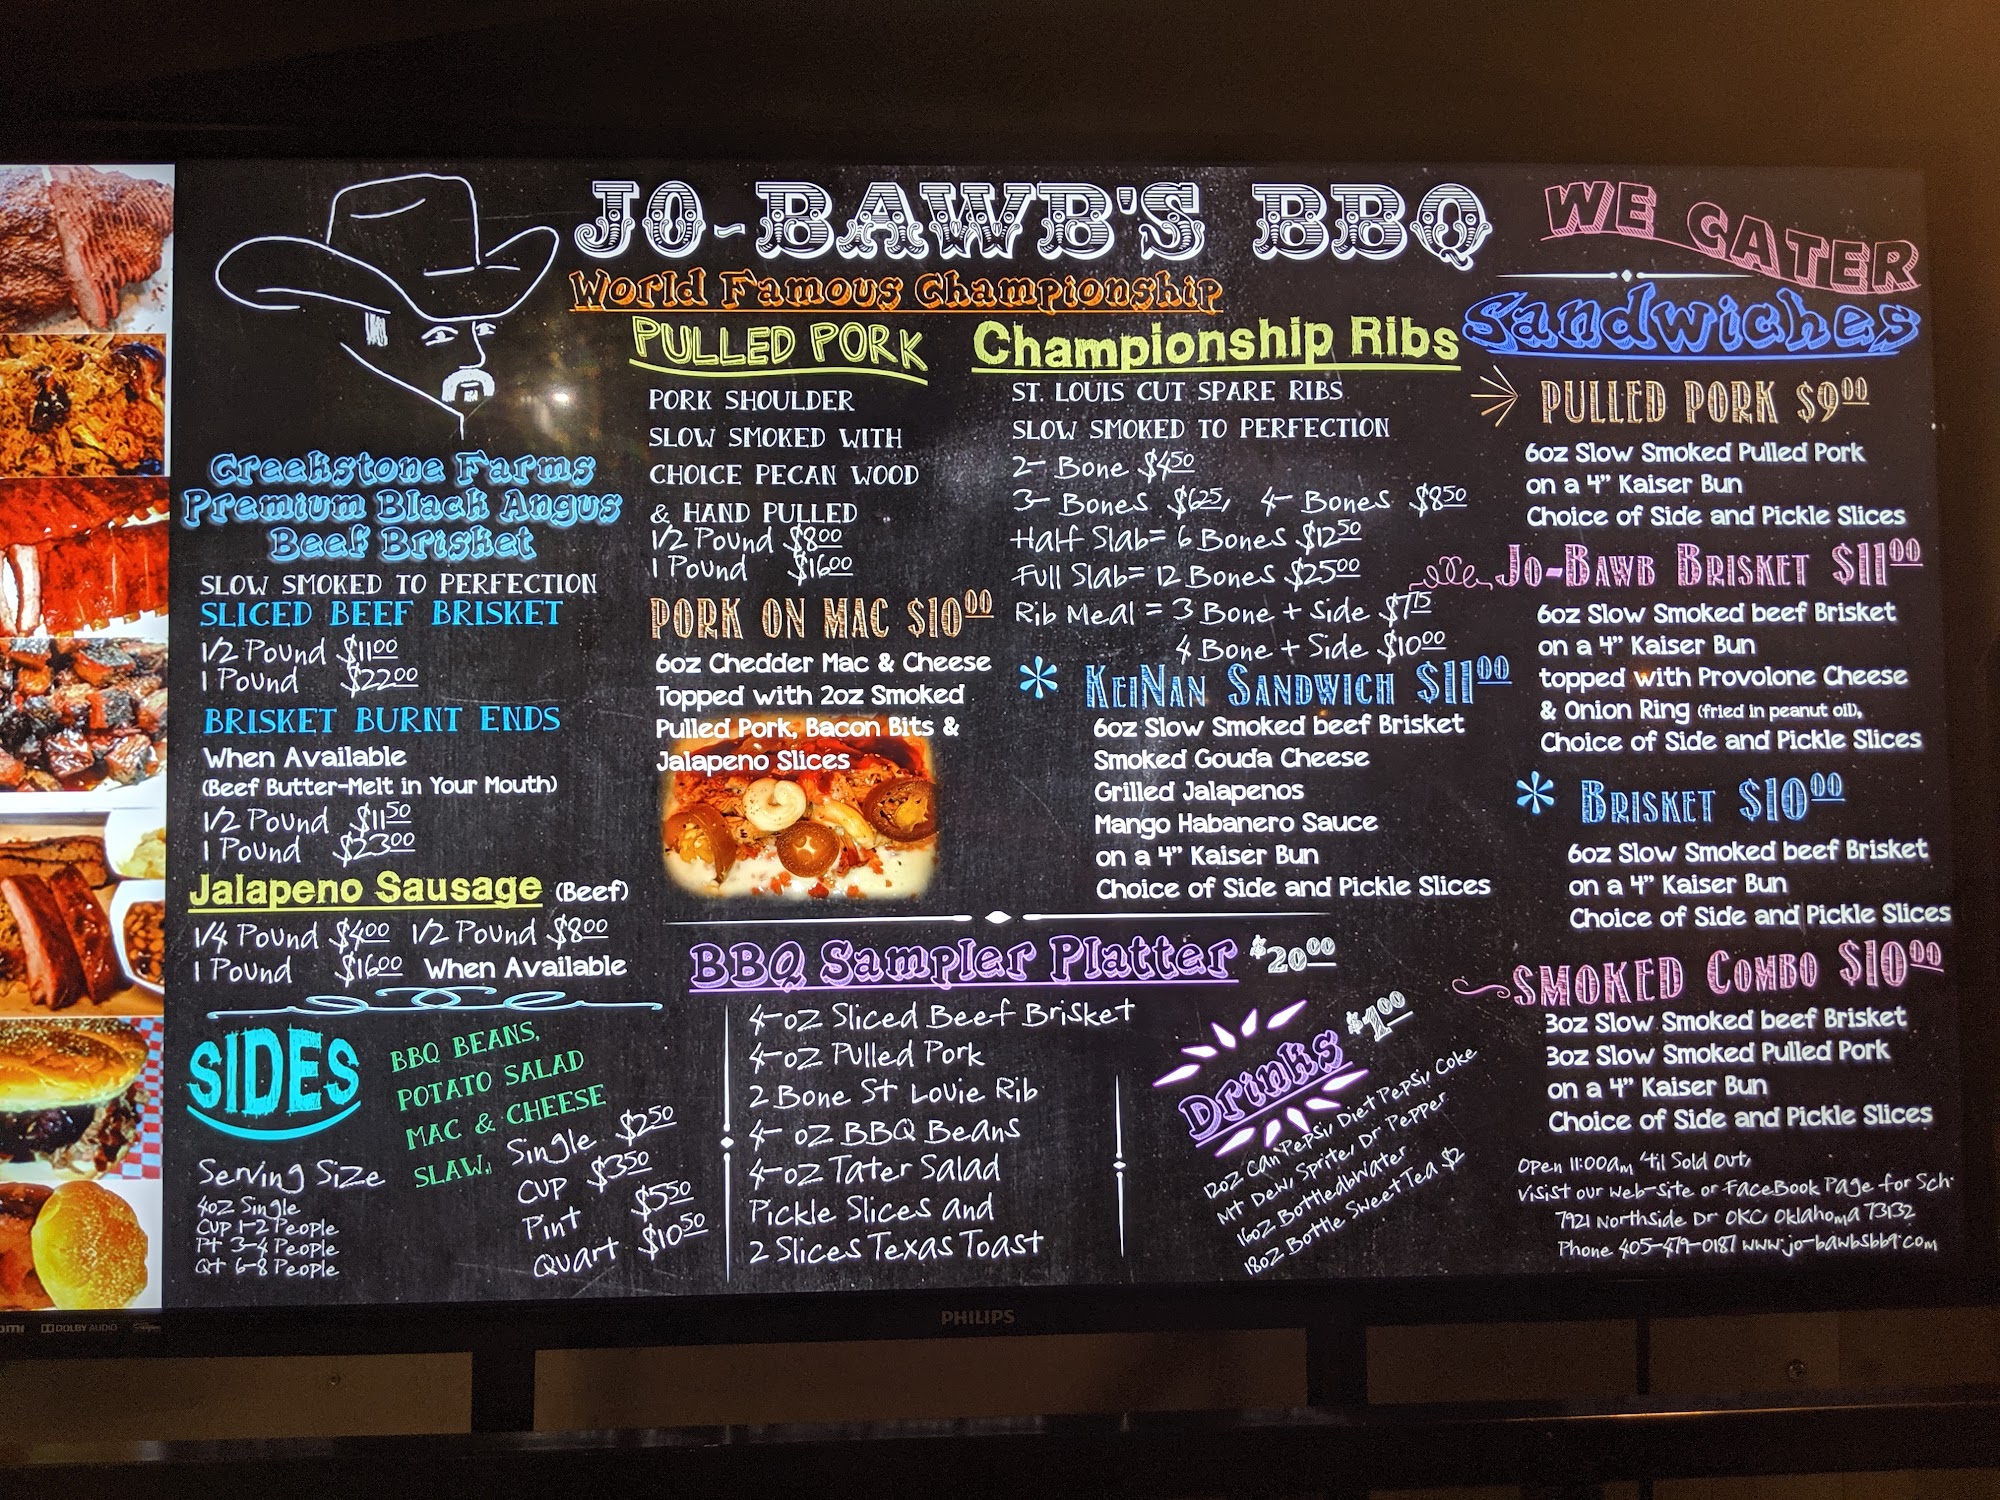 JO-BAWB'S BBQ
World Famous Championship
WE CATER
Creekstone Farms
Premium Black Angus
Beef Brisket
SLOW SMOKED TO PERFECTION
SLICED BEEF BRISKET
1/2 Pound $11.00
1 Pound $22.00
BRISKET BURNT ENDS
When Available
(Beef Butter-Melt in Your Mouth)
1/2 Pound $11.50
1 Pound $23.00
Jalapeno Sausage (Beef)
1/4 Pound $4.00 1/2 Pound $8.00
1 Pound $16.00 When Available
SIDES
BBQ BEANS,
POTATO SALAD
MAC & CHEESE
SLAW,
Single $2.50
Cup $3.50
Pint $5.50
Quart $10.50
Serving Size
4oz Single
Cup 1-2 People
Pt 3-4 People
Qt 6-8 People
PULLED PORK
PORK SHOULDER
SLOW SMOKED WITH
CHOICE PECAN WOOD
& HAND PULLED
1/2 Pound $8.00
1 Pound $16.00
PORK ON MAC $10.00
6oz Chedder Mac & Cheese
Topped with 2oz Smoked
Pulled Pork, Bacon Bits &
Jalapeno Slices
Championship Ribs
ST. LOUIS CUT SPARE RIBS
SLOW SMOKED TO PERFECTION
2- Bone $4.50
3- Bones $6.25, 4- Bones $8.50
Half Slab= 6 Bones $12.50
Full Slab= 12 Bones $25.00
Rib Meal = 3 Bone + Side $7.75
4 Bone + Side $10.00
* KEINAN SANDWICH $11.00
6oz Slow Smoked beef Brisket
Smoked Gouda Cheese
Grilled Jalapenos
Mango Habanero Sauce
on a 4" Kaiser Bun
Choice of Side and Pickle Slices
BBQ Sampler Platter $20.00
4-oz Sliced Beef Brisket
4-oz Pulled Pork
2 Bone St Louie Rib
4- oz BBQ Beans
4-oz Tater Salad
Pickle Slices and
2 Slices Texas Toast
Drinks $1.00
12oz Can Pepsi, Diet Pepsi, Coke
Mt Dew, Sprite, Dr Pepper
16oz Bottledbwater
18oz Bottle Sweet Tea $2
Sandwiches
PULLED PORK $9.00
6oz Slow Smoked Pulled Pork
on a 4" Kaiser Bun
Choice of Side and Pickle Slices
JO-BAWB BRISKET $11.00
6oz Slow Smoked beef Brisket
on a 4" Kaiser Bun
topped with Provolone Cheese
& Onion Ring (fried in peanut oil),
Choice of Side and Pickle Slices
* BRISKET $10.00
6oz Slow Smoked beef Brisket
on a 4" Kaiser Bun
Choice of Side and Pickle Slices
SMOKED COMBO $10.00
3oz Slow Smoked beef Brisket
3oz Slow Smoked Pulled Pork
on a 4" Kaiser Bun
Choice of Side and Pickle Slices
Open 11:00am 'til Sold Out,
Visist our web-site or FaceBook Page for Sch.
7921 Northside Dr OKC, Oklahoma 73132
Phone 405-479-0187 www.jo-bawbsbbq.com
PHILIPS
DOLBY AUDIO